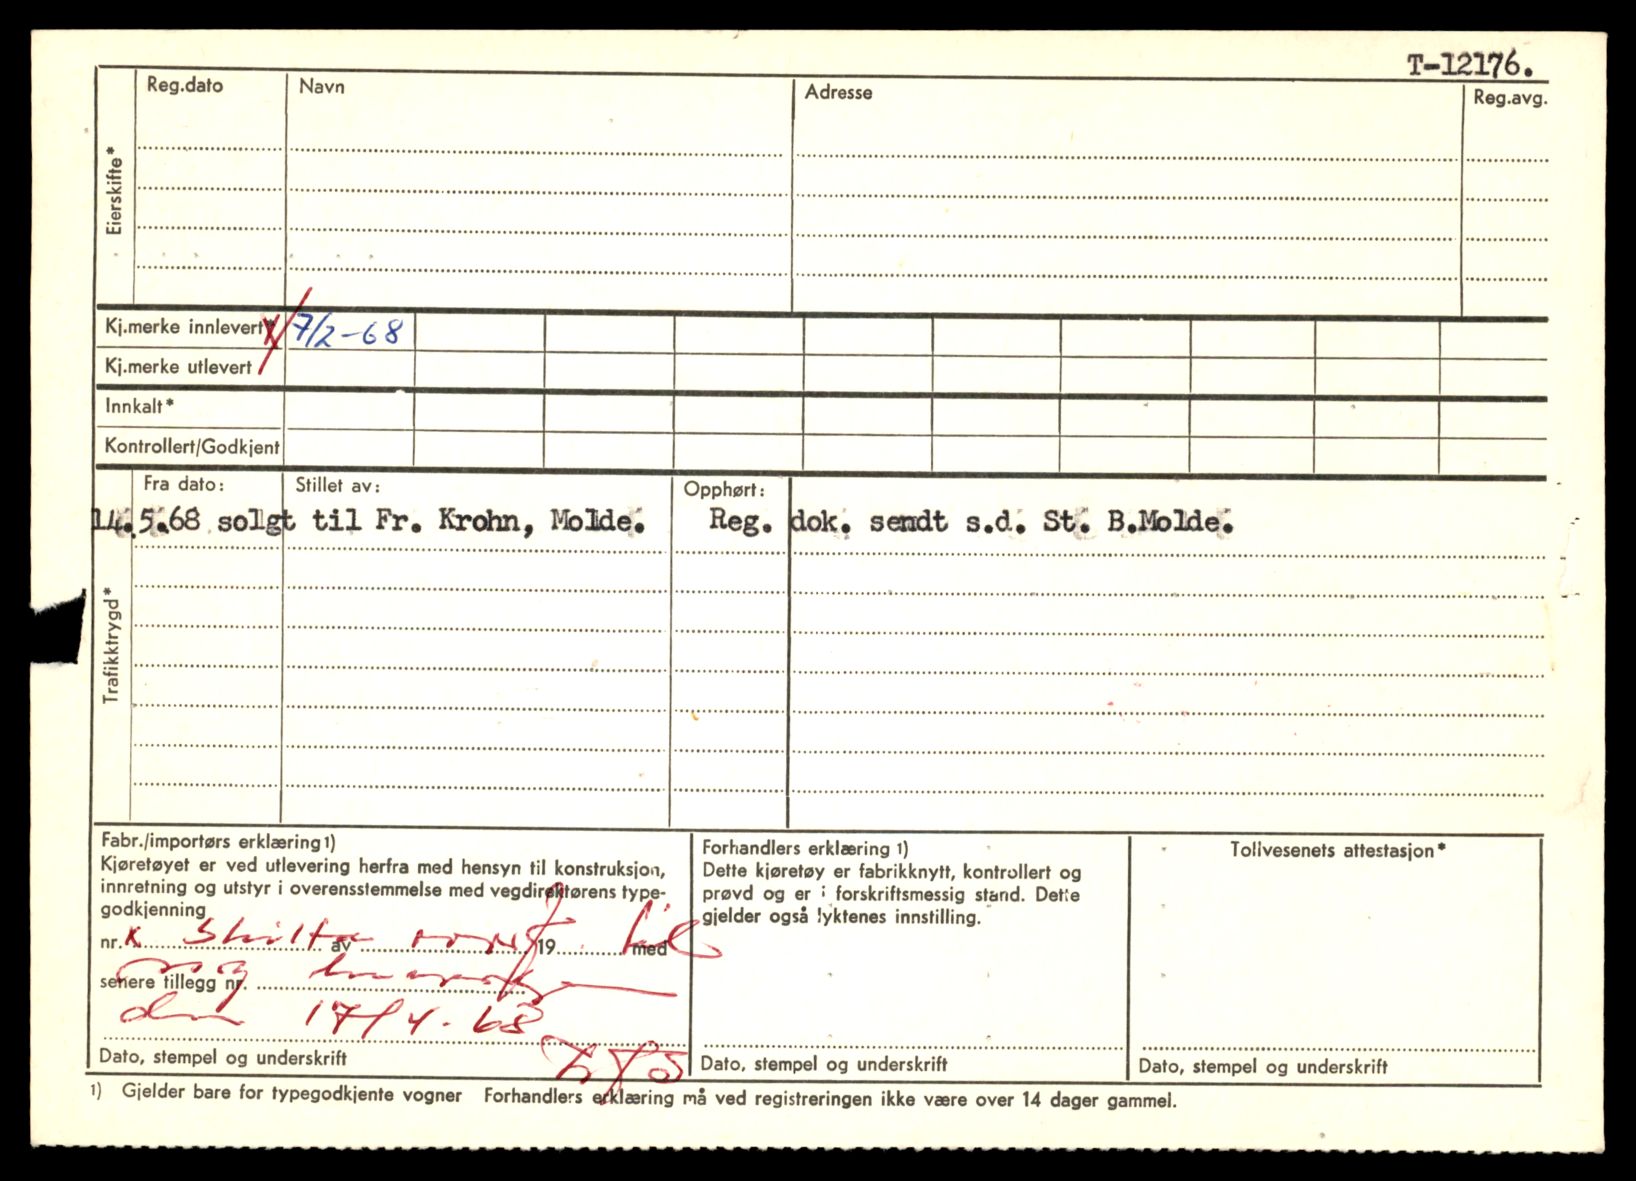 T-12176.
Reg.dato Navn Adresse Reg.avg.
Eierskifte*
Kj.merke innlevert* 7/2-68
Kj.merke utlevert
Innkalt*
Kontrollert/Godkjent
Fra dato: Stillet av: Opphørt:
14.5.68 solgt til Fr. Krohn, Molde. Reg. dok. sendt s.d. St. B.Molde.
Trafikktrygd*
Fabr./importørs erklæring 1)
Kjøretøyet er ved utlevering herfra med hensyn til konstruksjon,
innretning og utstyr i overensstemmelse med vegdirektørens type-
godkjenning
nr. x Skilta av 19 med
senere tillegg nr.
17/4-68
Dato, stempel og underskrift
Forhandlers erklæring 1)
Dette kjøretøy er fabrikknytt, kontrollert og
prøvd og er i forskriftsmessig stand. Dette
gjelder også lyktenes innstilling.
Dato, stempel og underskrift
Tollvesenets attestasjon*
Dato, stempel og underskrift
1) Gjelder bare for typegodkjente vogner Forhandlers erklæring må ved registreringen ikke være over 14 dager gammel.